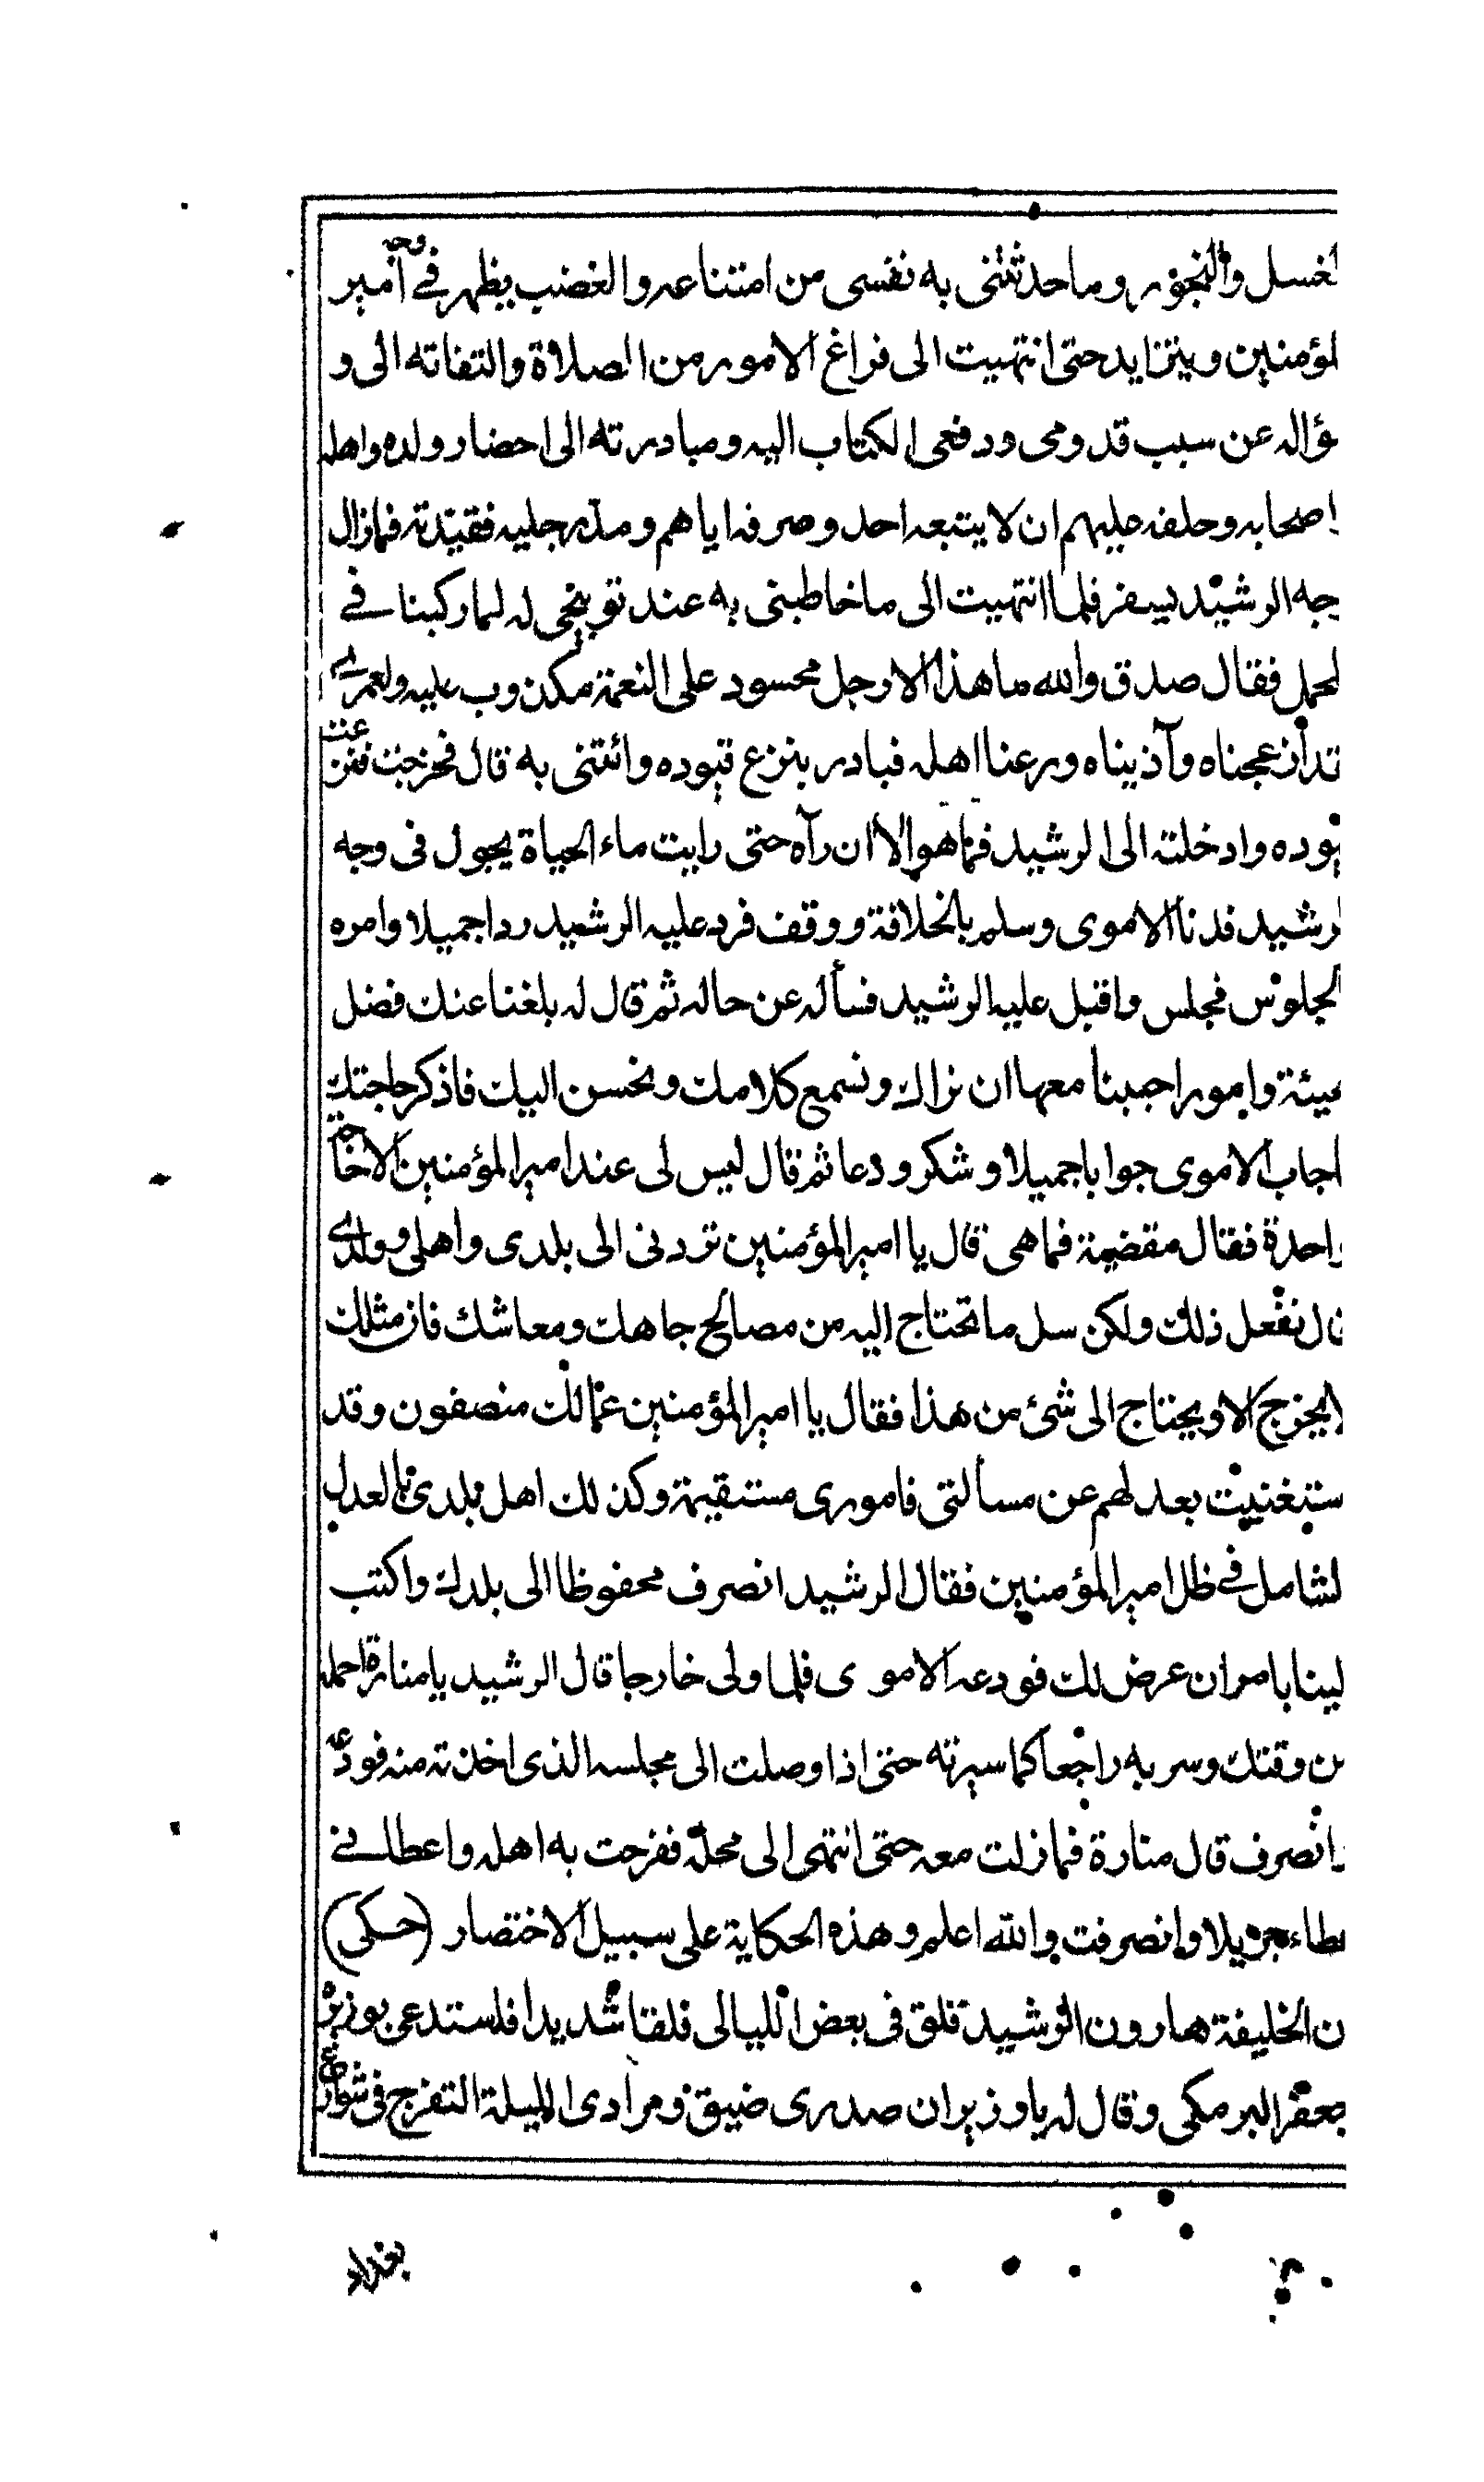 لغسل والنجور وما حدثتنى به نفسى من امتناعه والغضب يظهر فى وجه امير
لمؤمنين ويتزايد حتى انتهيت الى فراغ الامور من الصلاة والتفاته الى و
ؤاله عن سبب قدومى ودفعى الكتاب اليه ومبادرته الى احضار ولده واهله
اصحابه وحلفه عليهم ان لا يتبعه احد وصرفه اياهم ومد رجليه فقيدته فمازال
جه الرشيد يسفر فلما انتهيت الى ما خاطبنى به عند توبيخى له لما ركبنا فى
لمحمل فقال صدق والله ما هذا الا رجل محسود على النعمة مكذوب عليه ولعمرى
قد أزعجناه وآذيناه ورعنا اهله فبادر بنزع قيوده وائتنى به قال فخرجت فنزعت
يوده وادخلته الى الرشيد فما هو الا ان رآه حتى رايت ماء الحياة يجول فى وجه
لرشيد فدنا الاموى وسلم بالخلافة ووقف فرد عليه الرشيد ردا جميلا وامره
الجلوس فجلس واقبل عليه الرشيد فسأله عن حاله ثم قال له بلغنا عنك فضل
هيئة وامور احببنا معها ان نراك ونسمع كلامك ونحسن اليك فاذكر حاجتك
اجاب الاموى جوابا جميلا وشكر ودعا ثم قال ليس لى عند امير المؤمنين الا حاجة
واحدة فقال مقضية فما هى قال يا امير المؤمنين تردنى الى بلدى واهلى وولدى
ال نفعل ذلك ولكن سل ما تحتاج اليه من مصالح جاهك ومعاشك فان مثلك
لا يخرج الا ويحتاج الى شئ من هذا فقال يا امير المؤمنين عمالك منصفون وقد
ستغنيت بعدلهم عن مسألتى فامورى مستقيمة وكذلك اهل بلدى بالعدل
لشامل فى ظل امير المؤمنين فقال الرشيد انصرف محفوظا الى بلدك واكتب
لينا بامر ان عرض لك فودعه الاموى فلما ولى خارجا قال الرشيد يا منارة احمله
من وقتك وسر به راجعا كما سيرته حتى اذا وصلت الى مجلسه الذى اخذته منه فودعه
وانصرف قال منارة فما زلت معه حتى انتهى الى محله ففرحت به اهله واعطانى
عطاء جزيلا وانصرفت والله اعلم وهذه الحكاية على سبيل الاختصار (حكى)
ن الخليفة هارون الرشيد قلق فى بعض الليالى قلقا شديدا فاستدعى بوزيره
جعفر البرمكى وقال له يا وزير ان صدرى ضيق ومرادى الليلة التفرج فى شوارع
بغداد